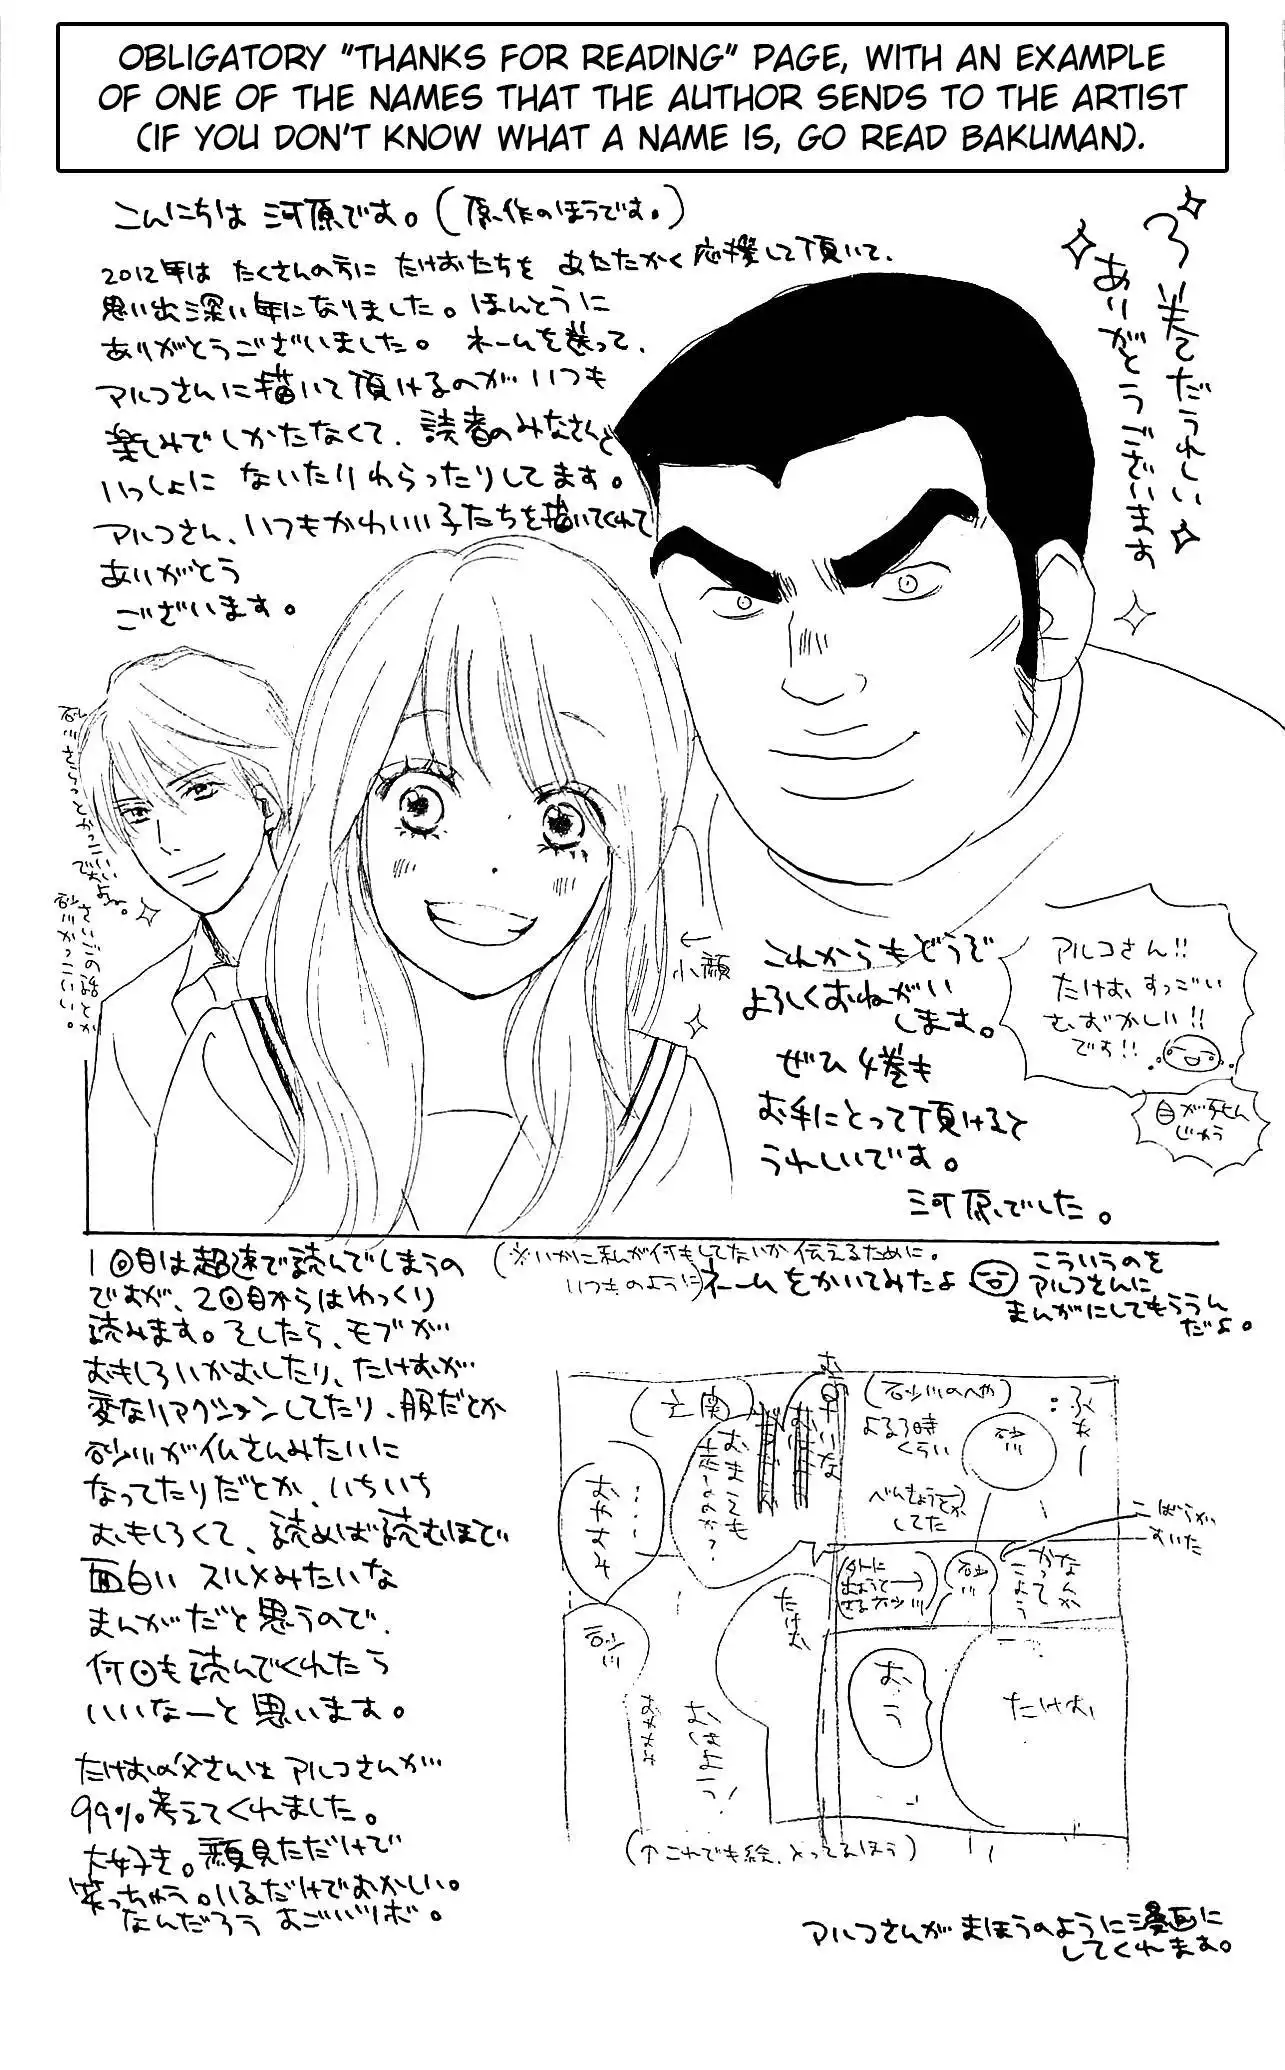 OBLIGATORY "THANKS FOR READING" PAGE, WITH AN EXAMPLE
OF ONE OF THE NAMES THAT THE AUTHOR SENDS TO THE ARTIST
(IF YOU DON'T KNOW WHAT A NAME IS, GO READ BAKUMAN).
こんにちは 河原です。(原作のほうです。)
2012年は たくさんの方に たけおたちを あたたかく応援して頂いて、
思い出深い年になりました。ほんとうに
ありがとうございました。 ネームを送って、
アルコさんに描いて頂けるのが いつも
楽しみでしかたなくて、読者のみなさんと
いっしょに ないたりわらったりしてます。
アルコさん、いつもかわいい子たちを描いてくれて
ありがとう
ございます。
までうれしい
ありがとうございます
さいごの話とか
砂川かっこいい。
←
小顔
これからもどうぞ
よろしくおねがい
します。
ぜひ 4巻も
お手にとって頂けると
うれしいです。
河原でした。
アルコさん!!
たけお、すっごい
むずかしい!!
です!!
1回目は超速で読んでしまうの
ですが、2回目からはゆっくり
読みます。そしたら、モブが
おもしろいかおしたり、たけおが
変なリアクションしてたり、服だとか
砂川が仏さんみたいに
なってたりだとか、いちいち
おもしろくて、読めば読むほど
面白い スルメみたいな
まんがだと思うので、
何回も読んでくれたら
いいなーと思います。
たけおの父さんは アルコさんが
99%考えてくれました。
大好き。顔見ただけで
笑っちゃう。いるだけでおかしい。
なんだろう すごいツボ。
(※いかに私が何もしてないか伝えるために。
いつものように)ネームをかいてみたよ
こういうのを
アルコさんに
まんがにしてもらうん
だよ。
(砂川のへや)
よる3時
くらい
砂川
ふぁー
べんきょうとか
してた
こばらが
すいた
なんか
かって
こよう
(外に
出ようと
する砂川)
砂川
おう
たけお
(玄関)
おまえも
走るのか?
……
おやすみ
たけお
砂川
おはよう!
(↑これでも絵、とってるほう)
アルコさんが まほうのように漫画に
してくれます。